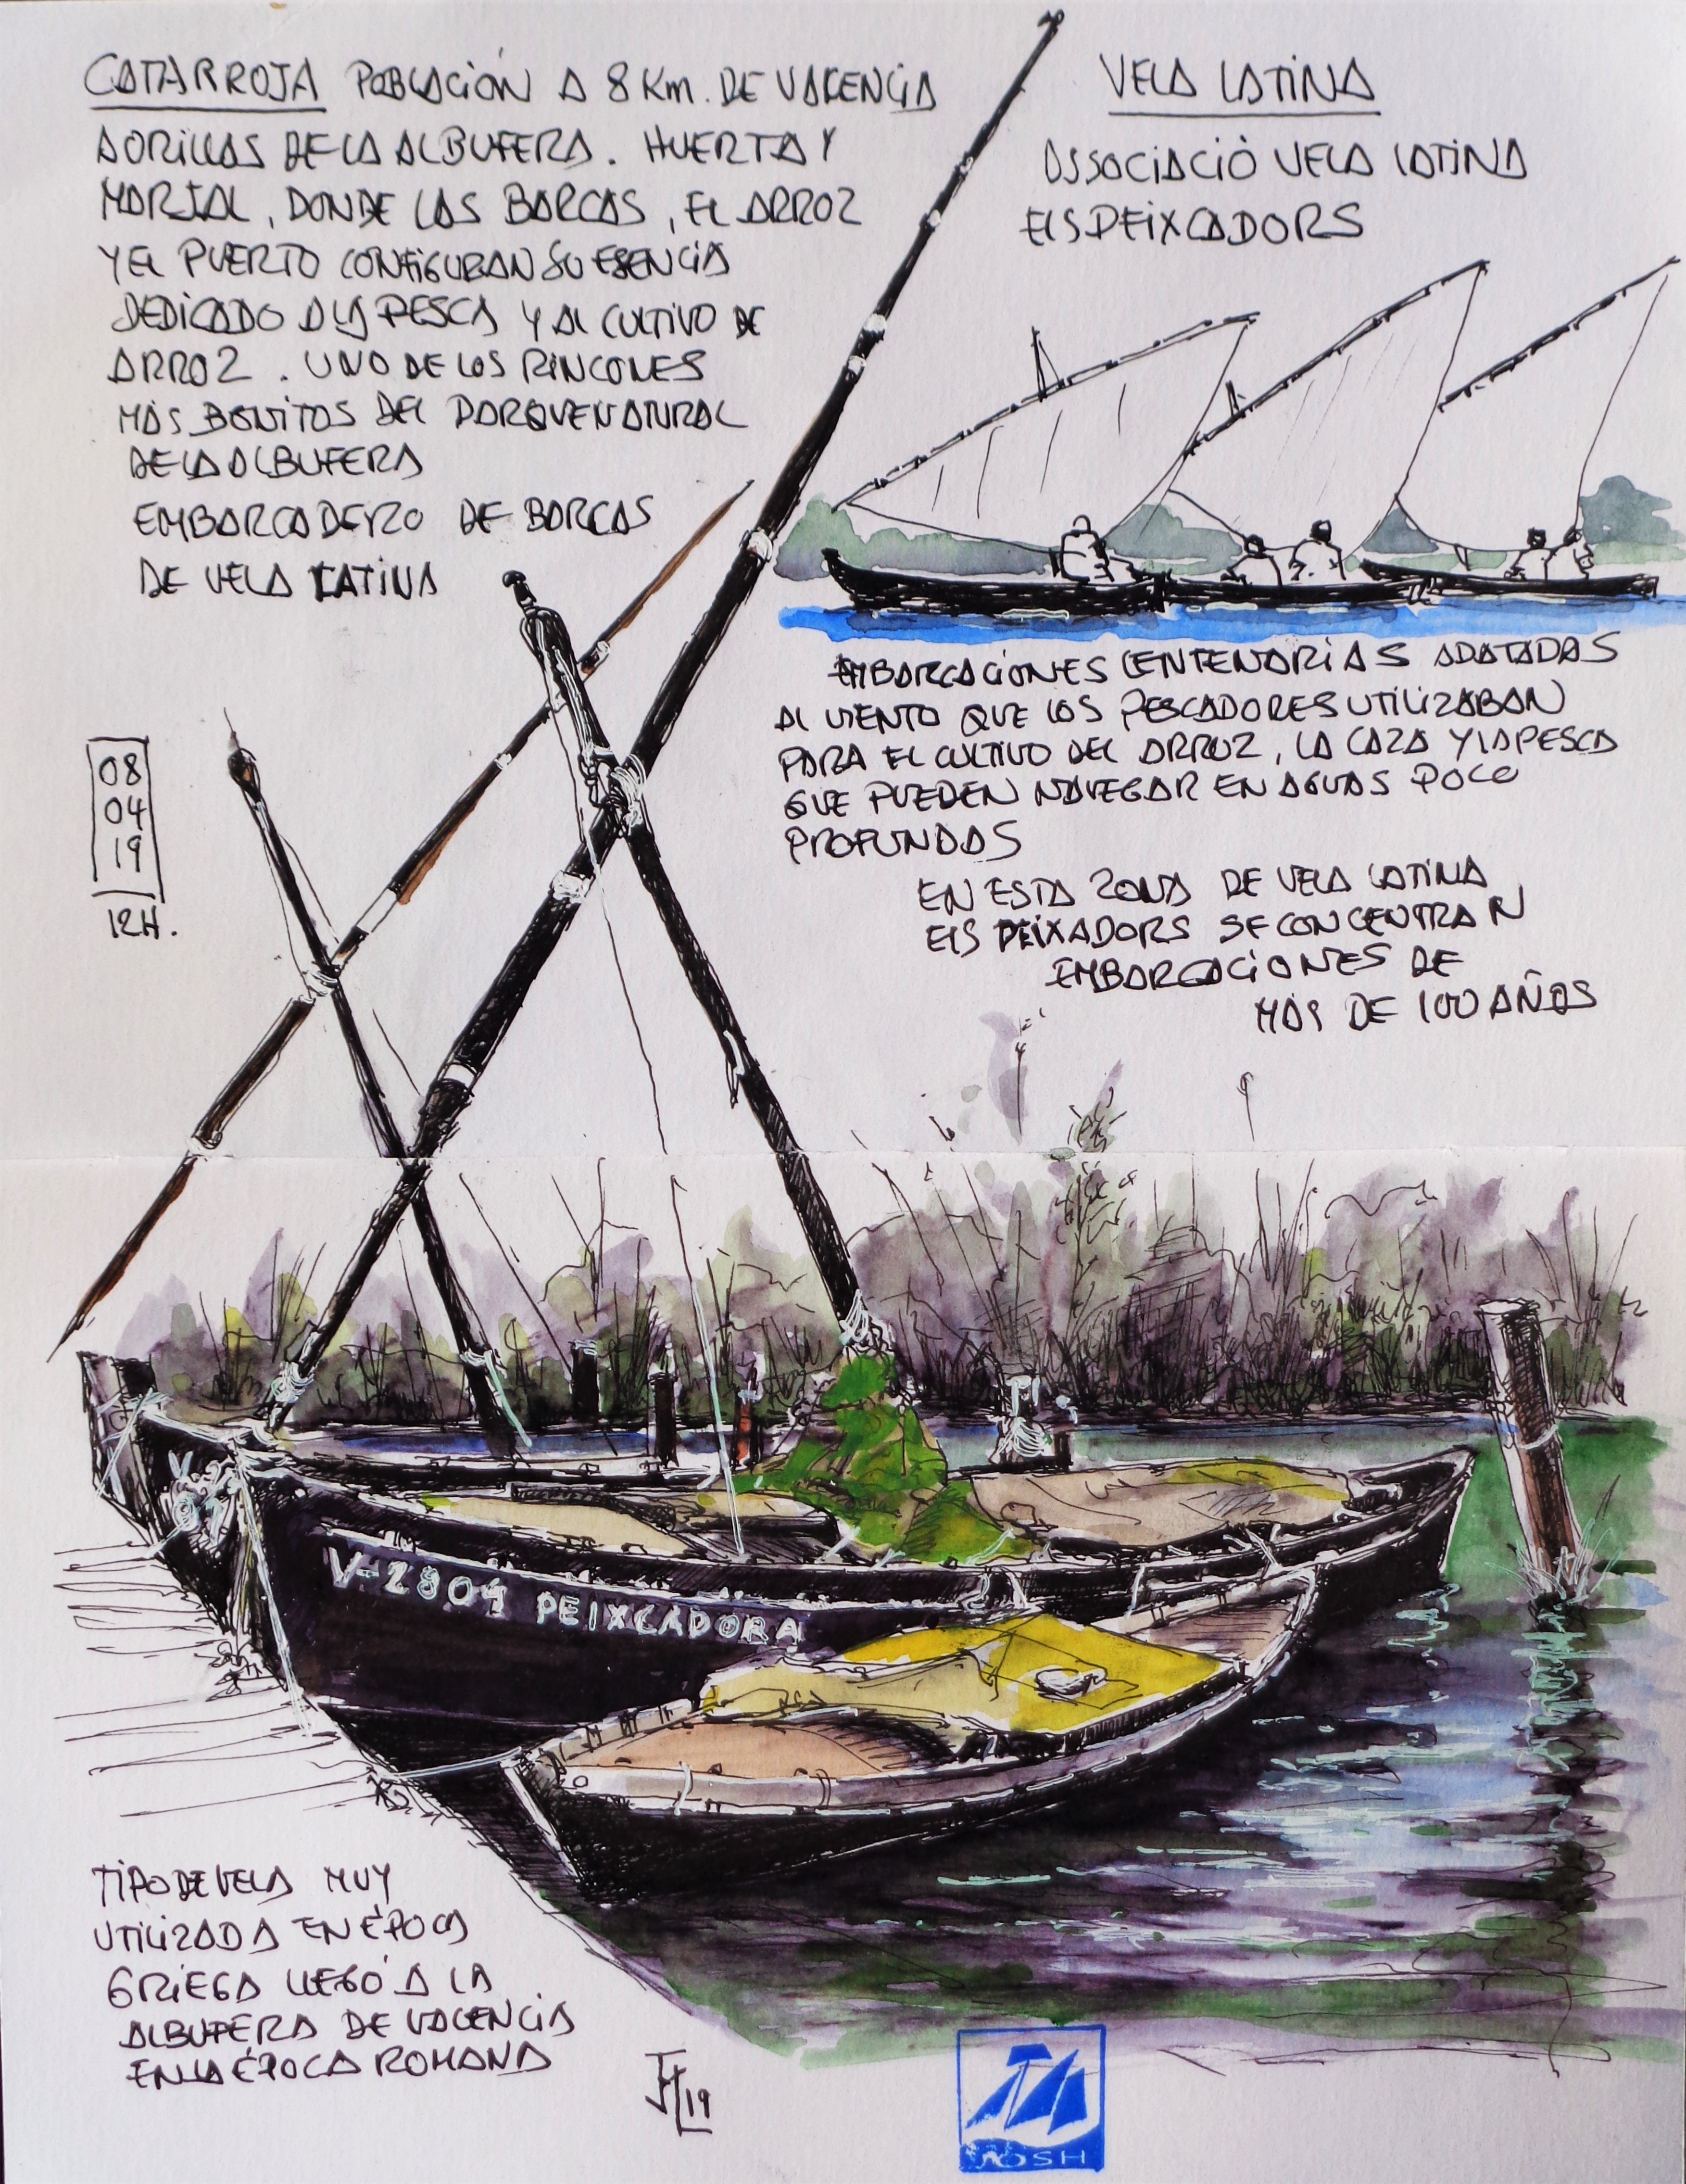 CATARROJA POBLACIÓN A 8 Km. DE VALENCIA
A ORILLAS DE LA ALBUFERA. HUERTA Y
MARJAL, DONDE LAS BARCAS, EL ARROZ
Y EL PUERTO CONFIGURAN SU ESENCIA
DEDICADO A LA PESCA Y AL CULTIVO DE
ARROZ. UNO DE LOS RINCONES
MÁS BONITOS DEL PARQUE NATURAL
DE LA ALBUFERA
EMBARCADERO DE BARCAS
DE VELA LATINA
VELA LATINA
ASSOCIACIÒ VELA LATINA
ELS PEIXCADORS
EMBARCACIONES CENTENARIAS ADATADAS
AL VIENTO QUE LOS PESCADORES UTILIZABAN
PARA EL CULTIVO DEL ARROZ, LA CAZA Y LA PESCA
QUE PUEDEN NAVEGAR EN AGUAS POCO
PROFUNDAS
EN ESTA ZONA DE VELA LATINA
ELS PEIXADORS SE CONCENTRAN
EMBARCACIONES DE
MÁS DE 100 AÑOS
08
04
19
12H.
V-2804 PEIXCADORA
TIPO DE VELA MUY
UTILIZADA EN ÉPOCA
GRIEGA LLEGÓ A LA
ALBUFERA DE VALENCIA
EN LA ÉPOCA ROMANA
19